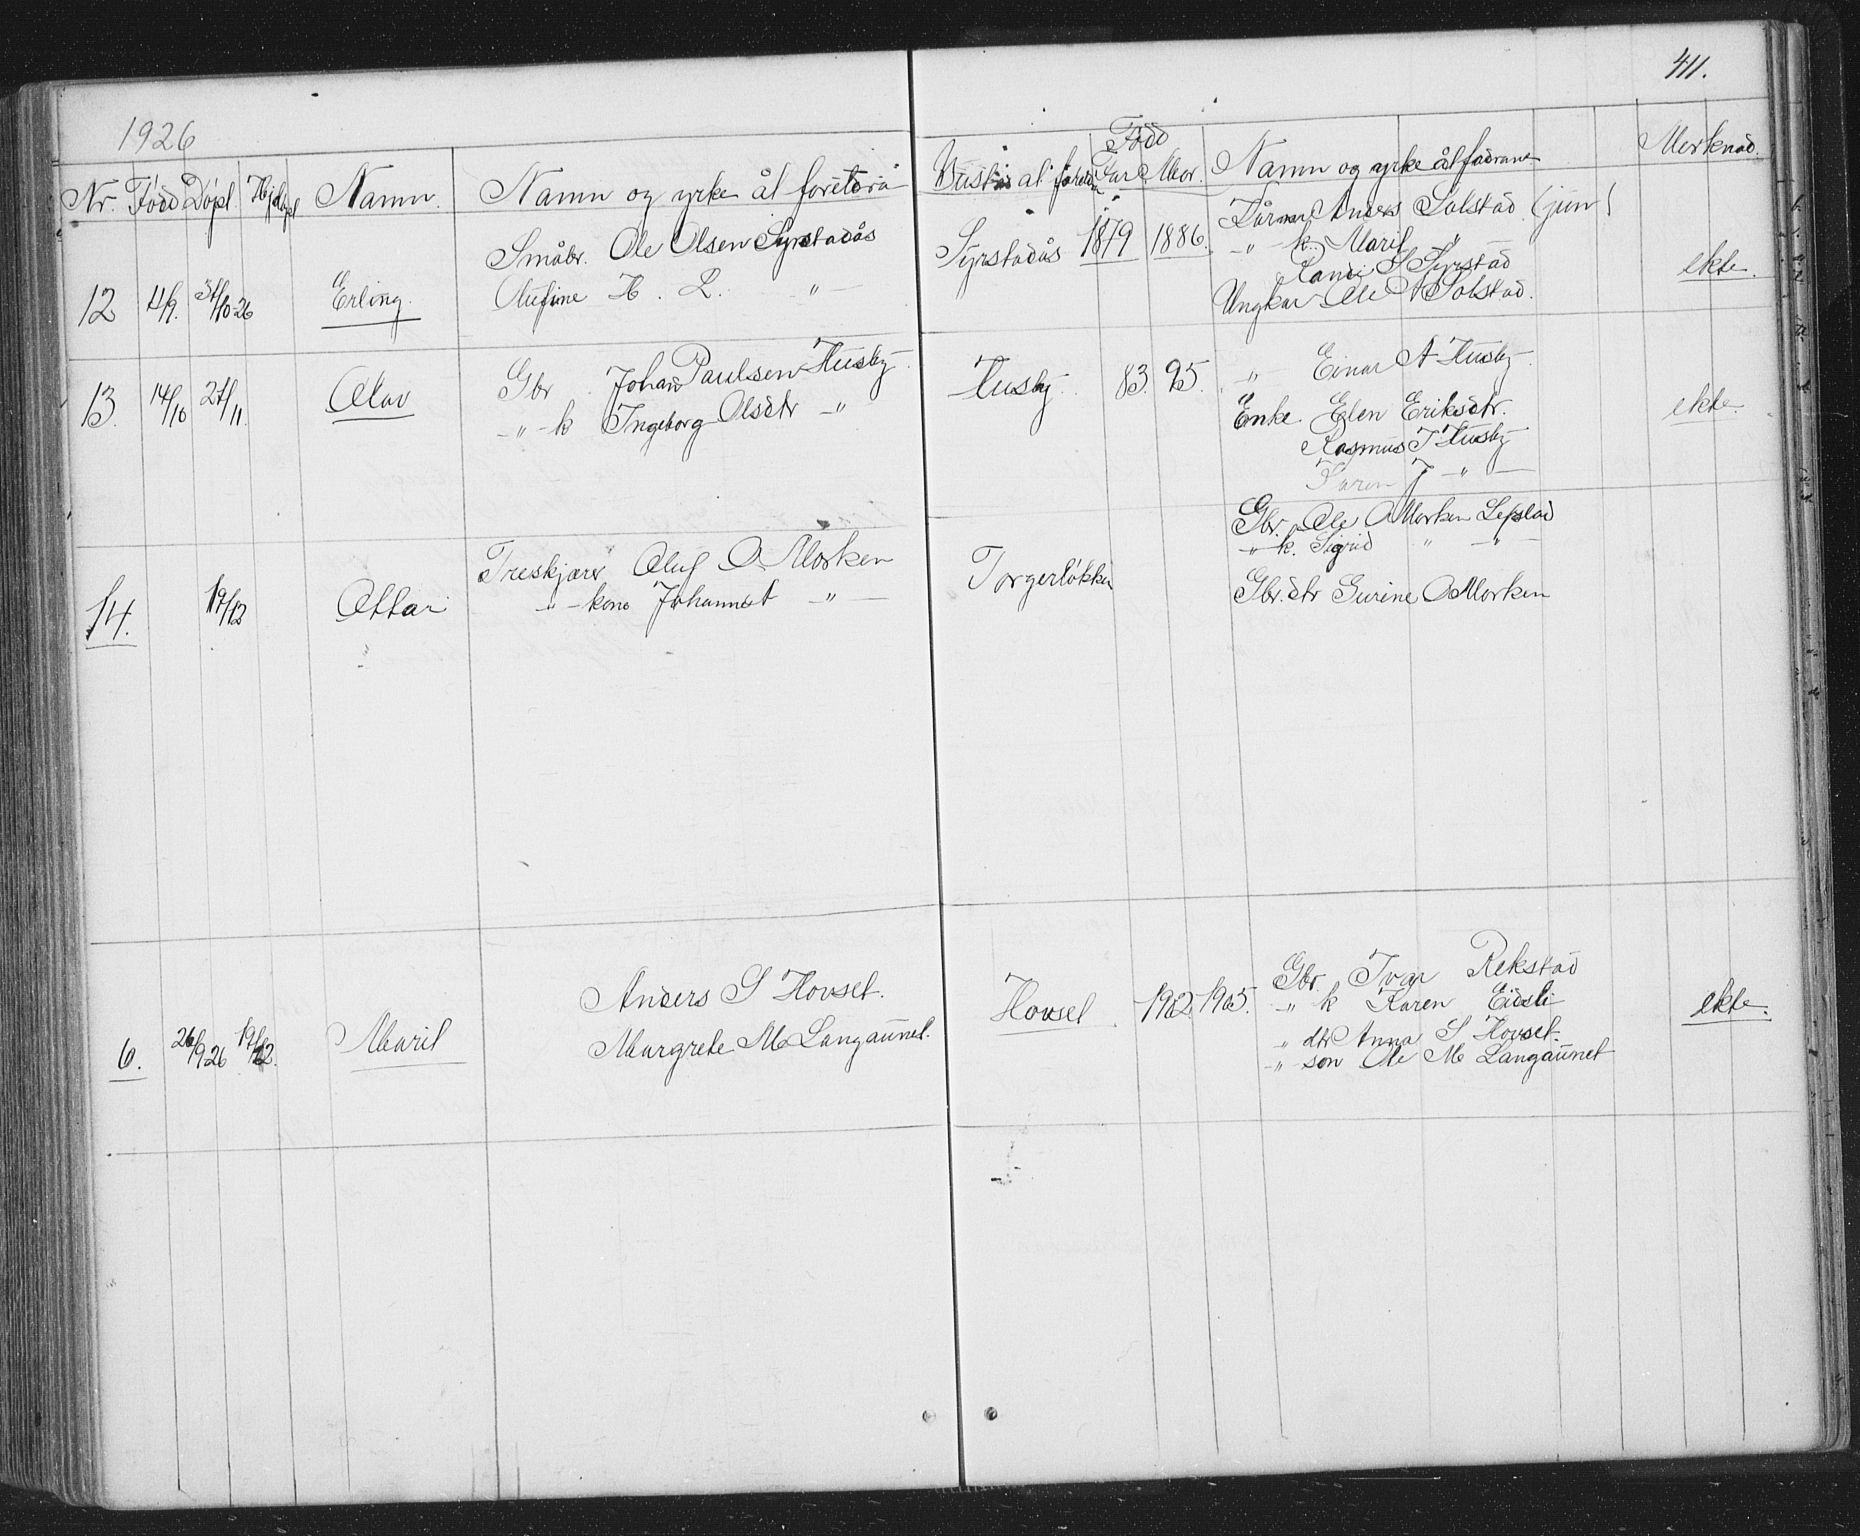 411.
1926
Nr. Född Döpt Hjdøpt Namn. Namn og yrke åt foreldra Bustad åt foreldra Född Far Mor. Namn og yrke åt fadrane Merknad.
12 4/9. 31/10-26 Erling. Småbr. Ole Olsen Syrstadås Syrstadås 1879 1886. Anders Solstad (jun)
Olufine H. L. — " — " k. Marit "
Randi S Syrstad ekte.
Ungkar Ole A Solstad.
13. 14/10 21/11. Olav Gbr. Johan Paulsen Husby Husby 83. 95. — " — Einar A Husby
— " — k Ingeborg Olsdtr — " — Enke Elen Eriksdtr. ekte.
Rasmus J Husby
Karen J — " —
Gbr. Ole O Morken Lefstad
— " — k. Sigrid " — " —
14. 19/12 Ottar Treskjærer Oluf O. Morken Torgerløkken
— " — kone Johannet — " — Gbr.dtr Gurine O Morken
6. 26/9 26 19/12. Marit Anders S Hovset. Hovset. 1902. 1905. Gbr. Ivar Rekstad ekte.
Margrete M Langaunet. — " k Karen Eidsli
" dtr Anna S Hovset.
— " — son Ole M Langaunet